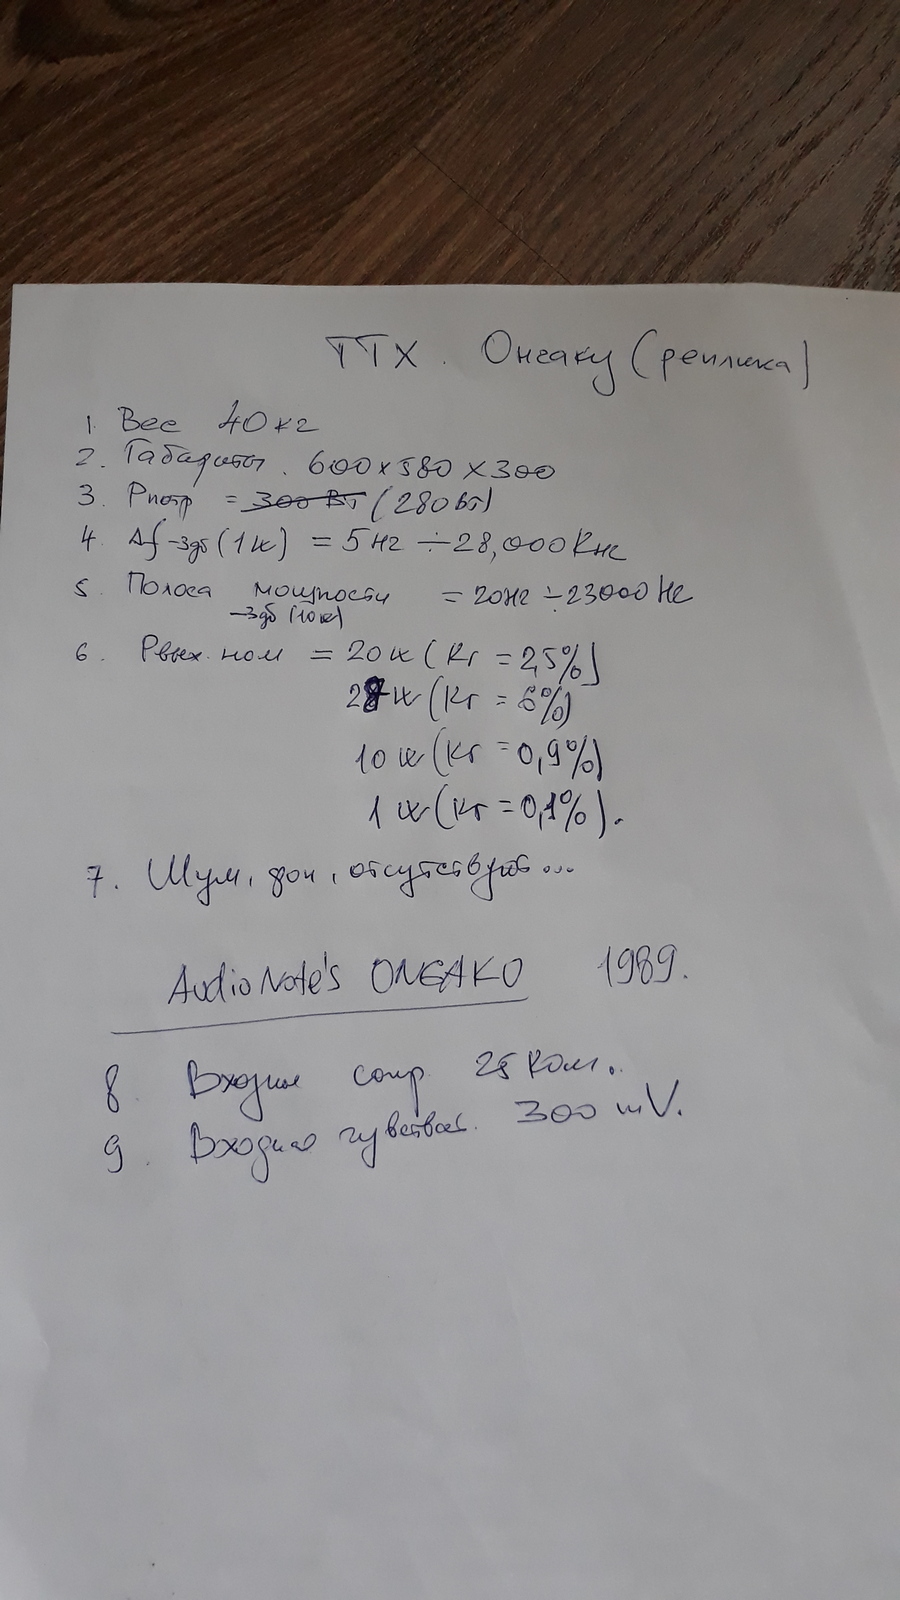 ТТХ. Онгаку (реплика)
1. Вес 40 кг
2. Габариты. 600 x 580 x 300
3. Pпотр = 300 Вт (280 Вт)
4. Δf -3дб (1w) = 5 Hz ÷ 28,000 Кнz
5. Полоса мощности = 20Hz ÷ 23000 Hz
-3дб (10w)
6. Рвых. ном = 20 w (Кг = 2,5%)
28 w (Кг = 6%)
10 w (Кг = 0,9%)
1 w (Кг = 0,1%).
7. Шум, фон, отсутствует...
Audio Note's ONGAKU 1989.
8. Входное сопр. 25 Ком.
9. Входная чувствит. 300 mV.